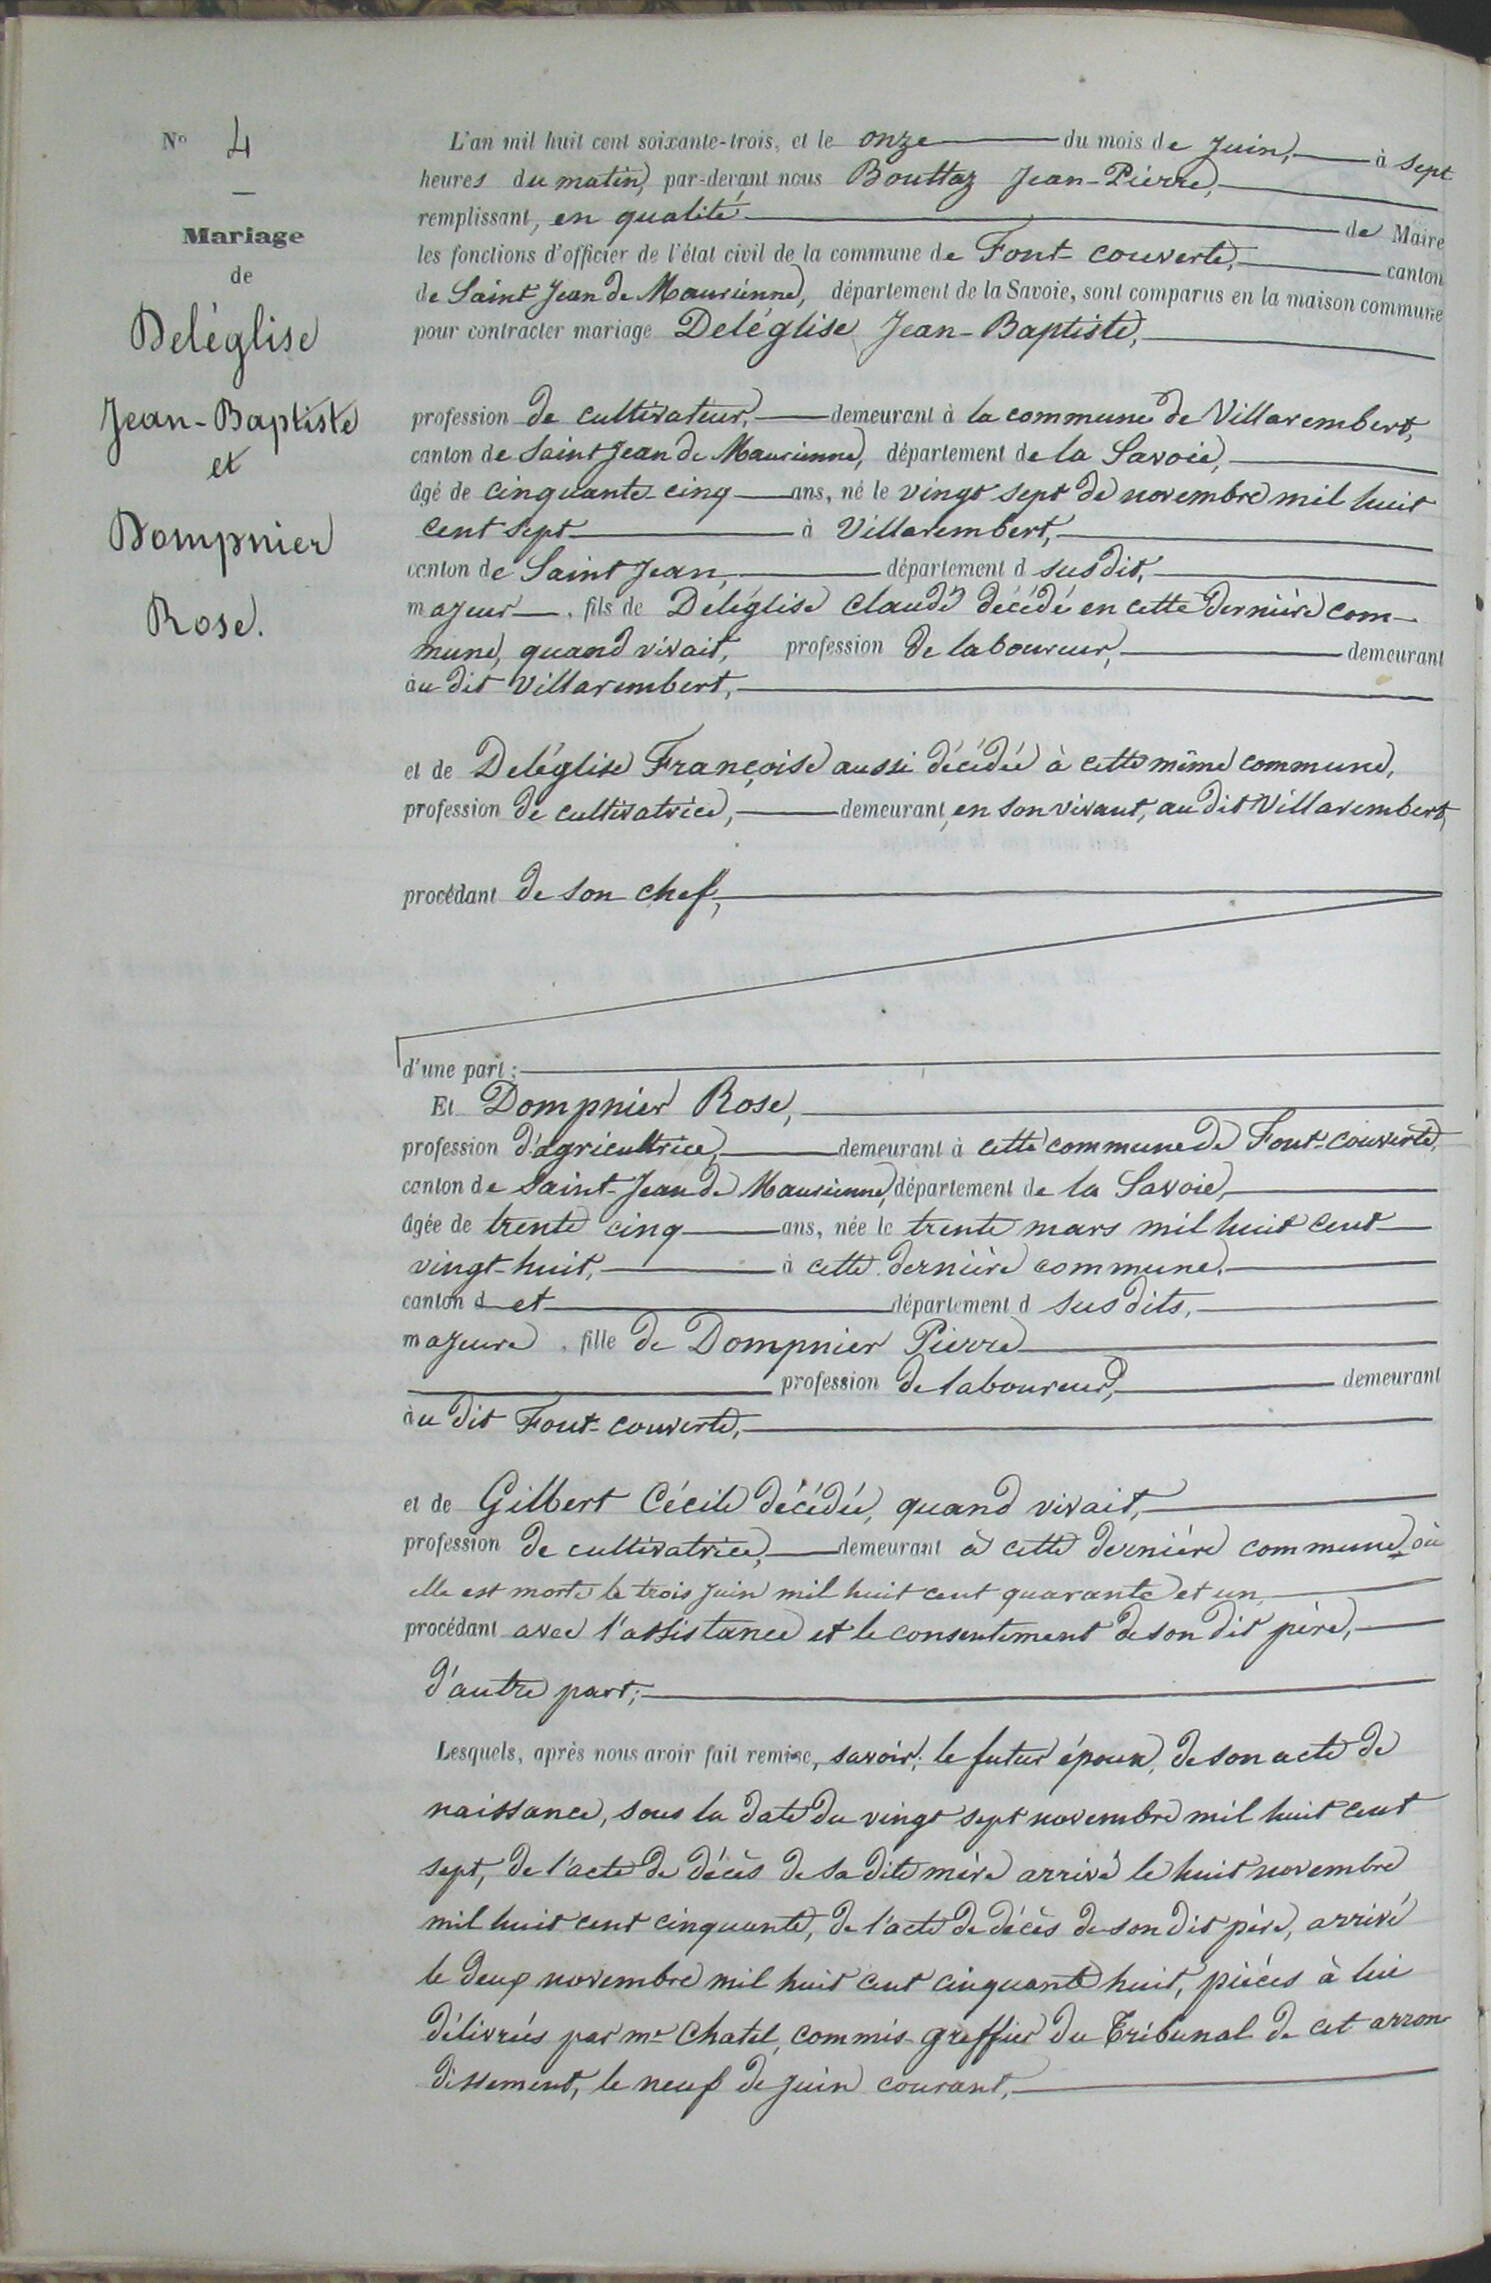 N° 4
Mariage
de
Deléglise
Jean-Baptiste
et
Dompnier
Rose.
L'an mil huit cent soixante-trois, et le onze du mois de Juin, à sept
heures du matin, par-devant nous Bouttaz Jean-Pierre,
remplissant, en qualité de Maire
les fonctions d'officier de l'état civil de la commune de Font-couverte, canton
de Saint Jean de Maurienne, département de la Savoie, sont comparus en la maison commune
pour contracter mariage Deléglise Jean-Baptiste,
profession de cultivateur, demeurant à la commune de Villarembert,
canton de Saint Jean de Maurienne, département de la Savoie,
âgé de cinquante-cinq ans, né le vingt sept de novembre mil huit
cent sept à Villarembert,
canton de Saint Jean, département d susdit,
majeur, fils de Déléglise Claude décédé en cette dernière com-
mune, quand vivait, profession de laboureur, demeurant
àu dit Villarembert,
et de Deléglise Françoise aussi décédée à cette même commune,
profession de cultivatrice, demeurant, en son vivant, au dit Villarembert,
procédant de son chef,
d'une part :
Et Dompnier Rose,
profession d'agricultrice, demeurant à cette commune de Font-couverte,
canton de Saint-Jean de Maurienne, département de la Savoie,
âgée de trente cinq ans, née le trente mars mil huit cent
vingt-huit, à cette dernière commune,
canton d et département d susdits,
majeure, fille de Dompnier Pierre
profession de laboureur, demeurant
àu dit Font-couverte,
et de Gilbert Cécile décédée, quand vivait,
profession de cultivatrice, demeurant à cette dernière commune, où
elle est morte le trois Juin mil huit cent quarante et un
procédant avec l'assistance et le consentement de son dit père,
d'autre part;
Lesquels, après nous avoir fait remise, savoir; le futur époux, de son acte de
naissance, sous la date du vingt sept novembre mil huit cent
sept, de l'acte de décès de sa dite mère arrivé le huit novembre
mil huit cent cinquante, de l'acte de décès de son dit père, arrivé
le deux novembre mil huit cent cinquante huit, pièces à lui
délivrées par mr Chatel, commis-greffier du Tribunal de cet arron-
dissement, le neuf de Juin courant,